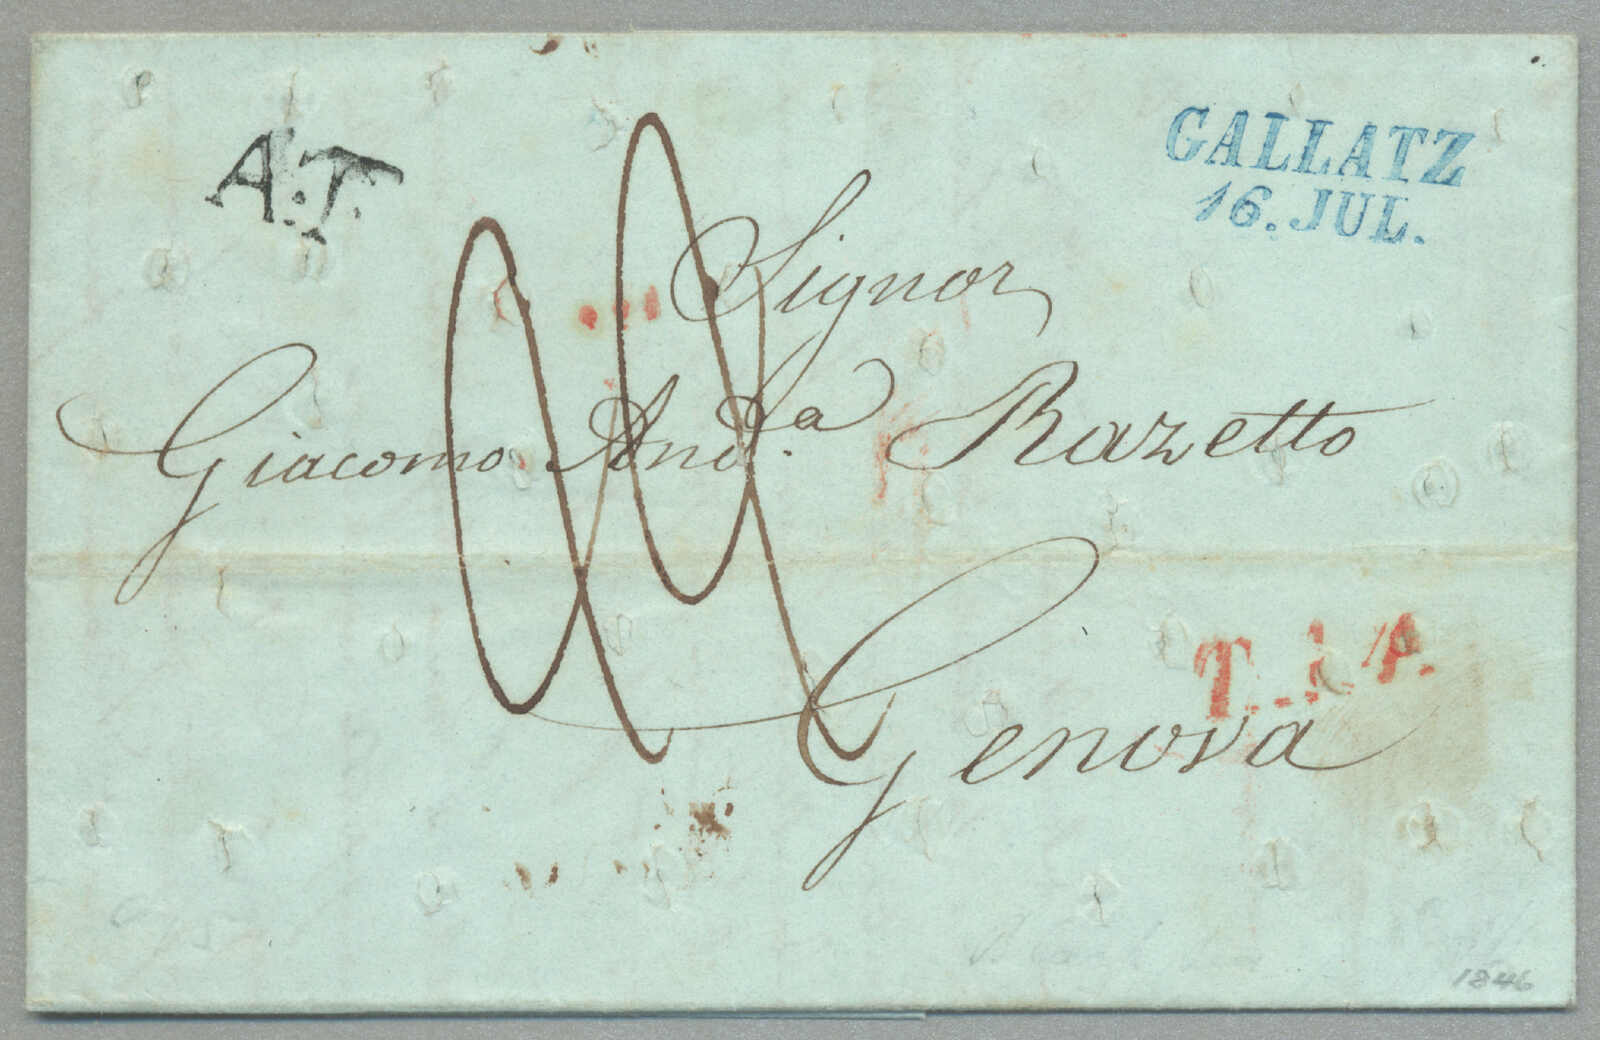 A.T.
GALLATZ
16. JUL.
Signor
Giacomo And.a Razetto
Genova
1846